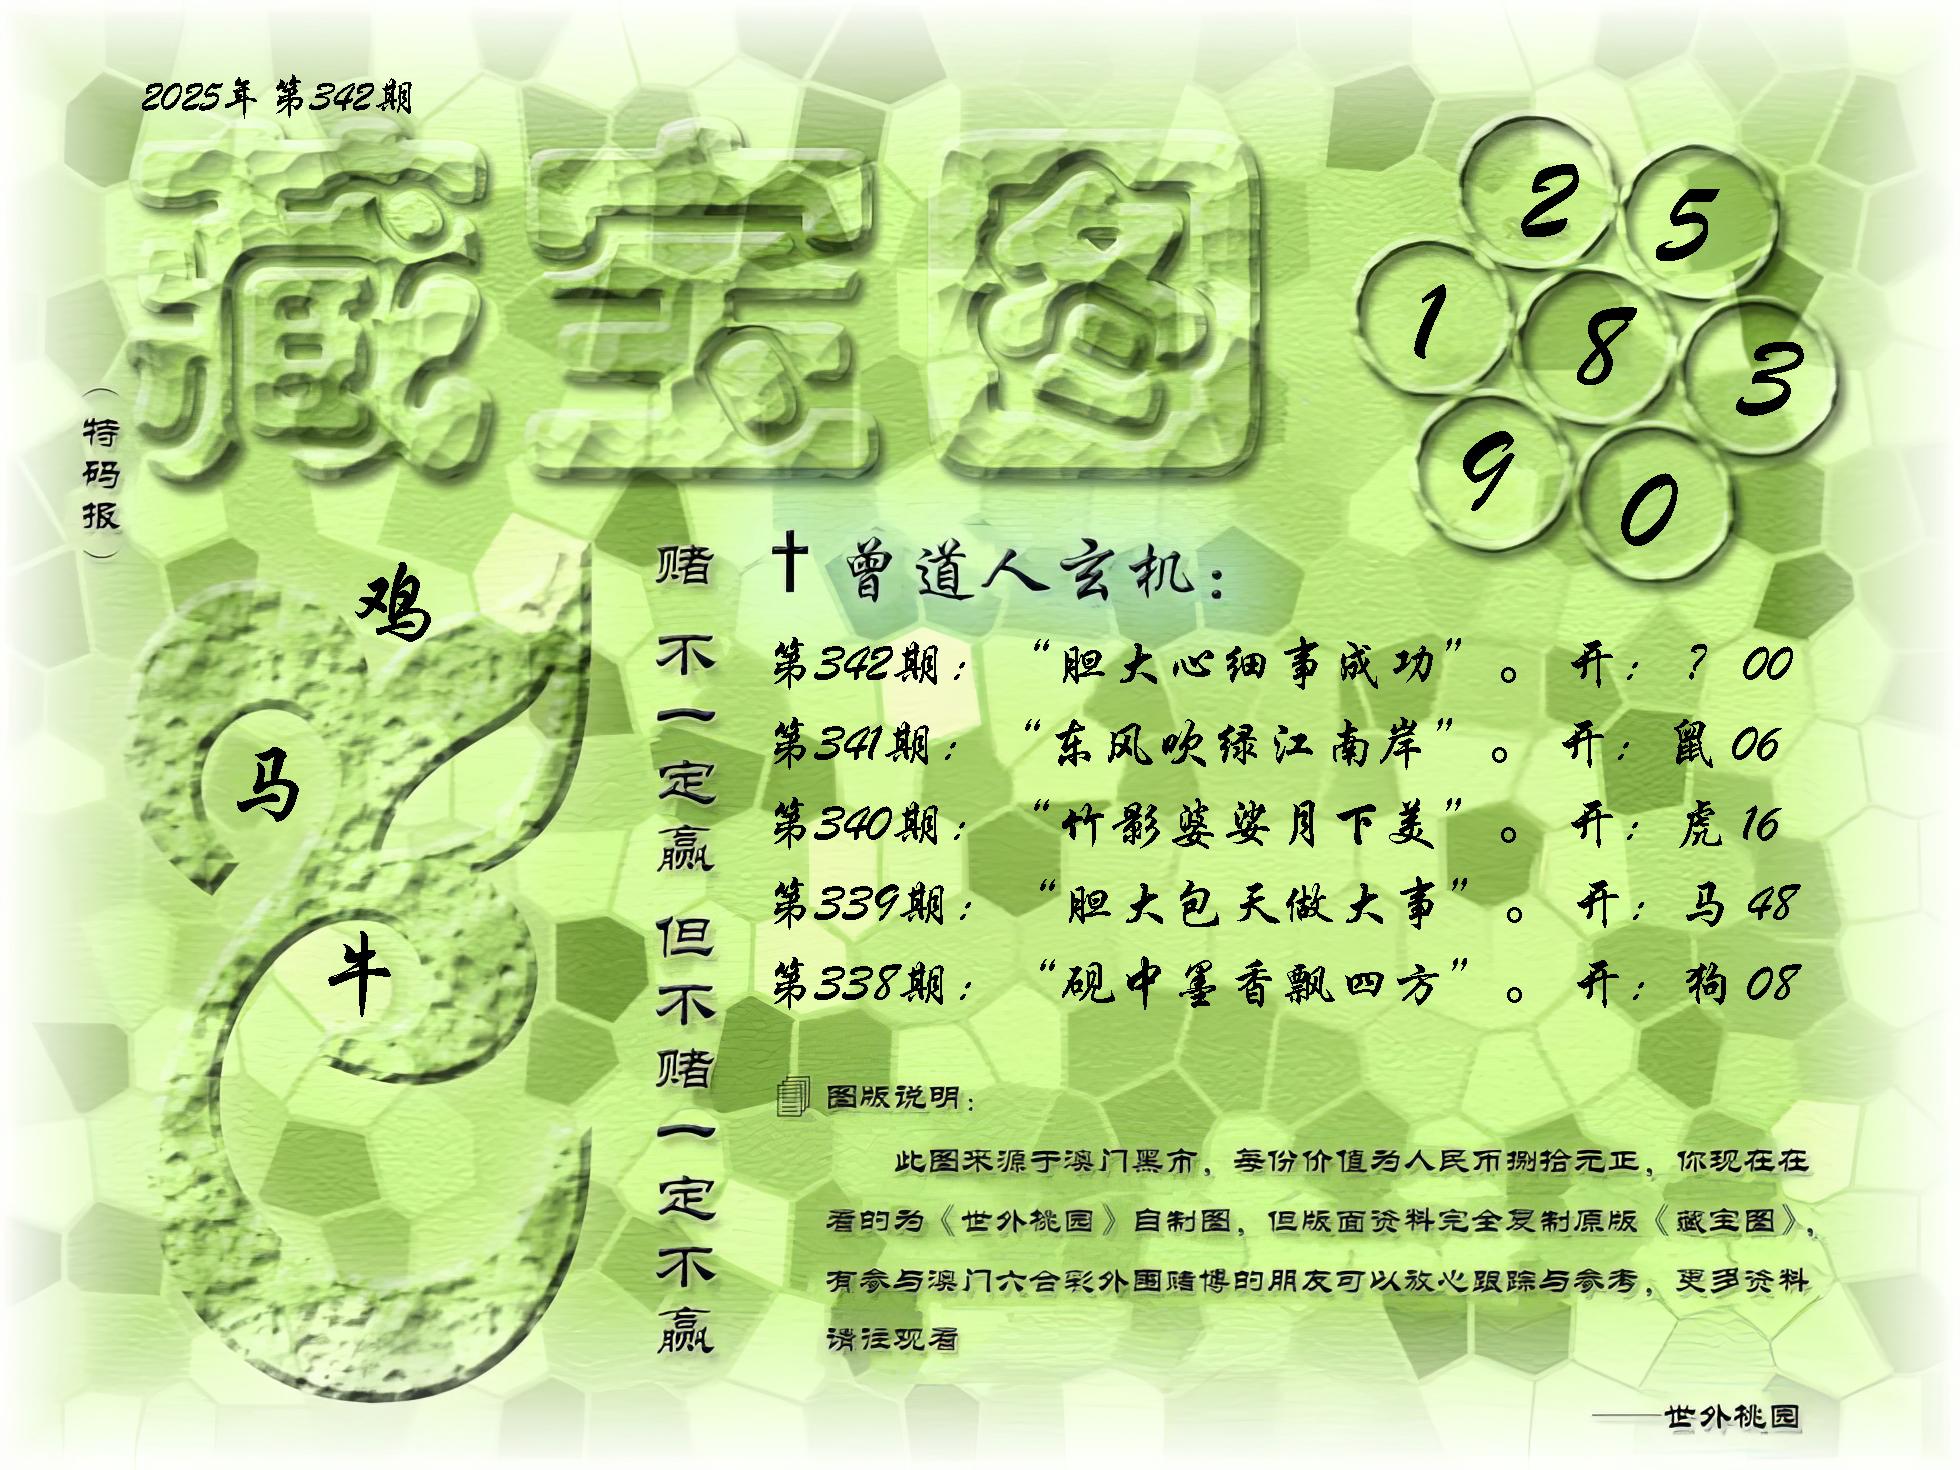 2025年 第342期
藏宝图
(特码报)
2
5
1
8
3
9
0
鸡
马
牛
赌不一定赢 但不赌一定不赢
曾道人玄机：
第342期： “胆大心细事成功”。 开： ？ 00
第341期： “东风吹绿江南岸”。 开： 鼠 06
第340期： “竹影婆娑月下美”。 开： 虎 16
第339期： “胆大包天做大事”。 开： 马 48
第338期： “砚中墨香飘四方”。 开： 狗 08
图版说明：
此图来源于澳门黑市，每份价值为人民币捌拾元正，你现在在
看的为《世外桃园》自制图，但版面资料完全复制原版《藏宝图》，
有参与澳门六合彩外围赌博的朋友可以放心跟踪与参考，更多资料
请往观看
——世外桃园